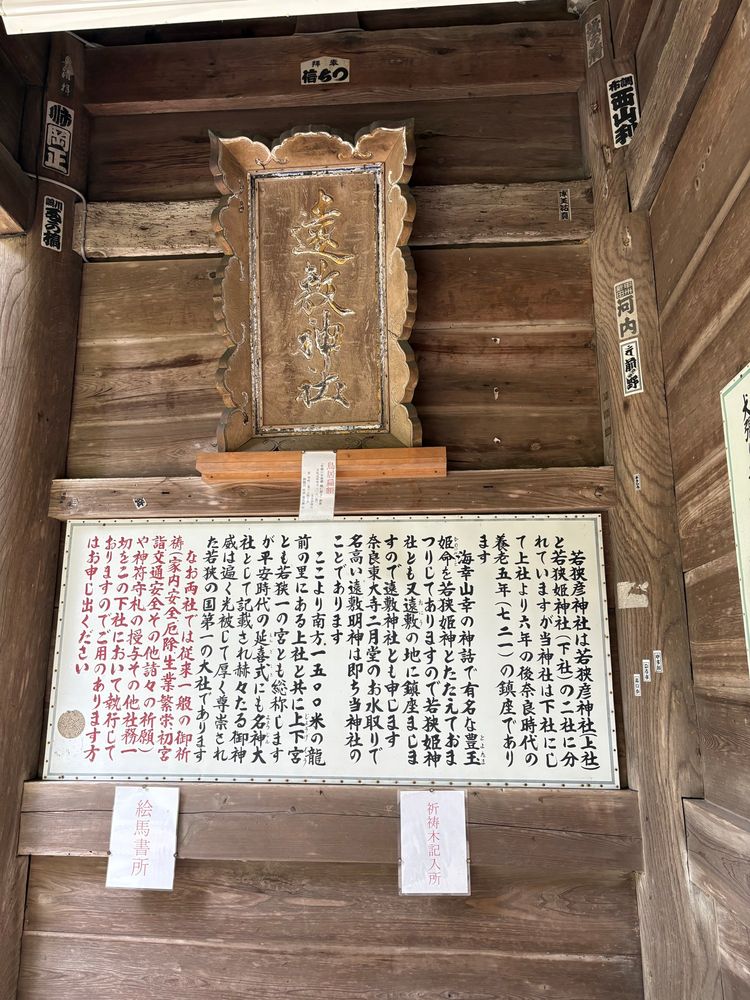 奉拝
信ちつ
岡正
調布
西山利
河内
前野
遠敷神社
鳥居扁額
若狭彦神社は若狭彦神社(上社)
と若狭姫神社(下社)の二社に分
れていますが当神社は下社にし
て上社より六年の後奈良時代の
養老五年(七二一)の鎮座であり
ます
海幸山幸の神話で有名な豊玉
姫命を若狭姫神とたたえておま
つりしてありますので若狭姫神
社とも又遠敷の地に鎮座ましま
すので遠敷神社とも申します
奈良東大寺二月堂のお水取りで
名高い遠敷明神は即ち当神社の
ことであります
ここより南方一五〇〇米の龍
前の里にある上社と共に上下宮
とも若狭一の宮とも総称します
が平安時代の延喜式にも名神大
社として記載され赫々たる御神
威は遍く光被して厚く尊崇され
た若狭の国第一の大社であります
なお両社では従来一般の御祈
祷(家内安全厄除生業繁栄初宮
詣交通安全その他諸々の祈願)
や神符守札の授与その他社務一
切をこの下社において執行して
おりますのでご用のあります方
はお申し出ください
絵馬書所
祈祷木記入所